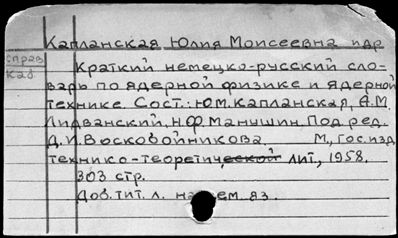 Капланская Юлия Моисеевна и др
справ
каб
Краткий немецко-русский сло-
варь по ядерной физике и ядерной
технике Сост.: Ю.М. Капланская, А.М.
Лидванский, Н.Ф. Манушин. Под ред.
Д.И. Восковойникова. М., Гос. изд
технико-теоретической лит, 1958.
303 стр.
Доб. тит. л. на нем яз.